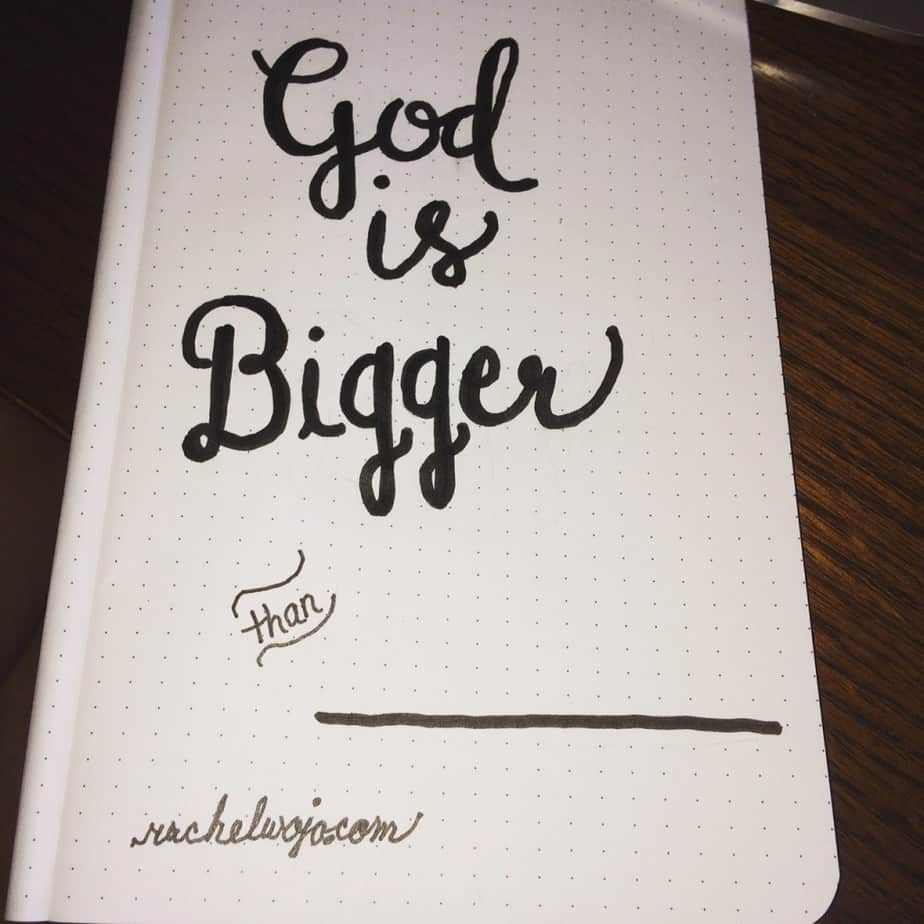 God
is
Bigger
than
rachelwojo.com